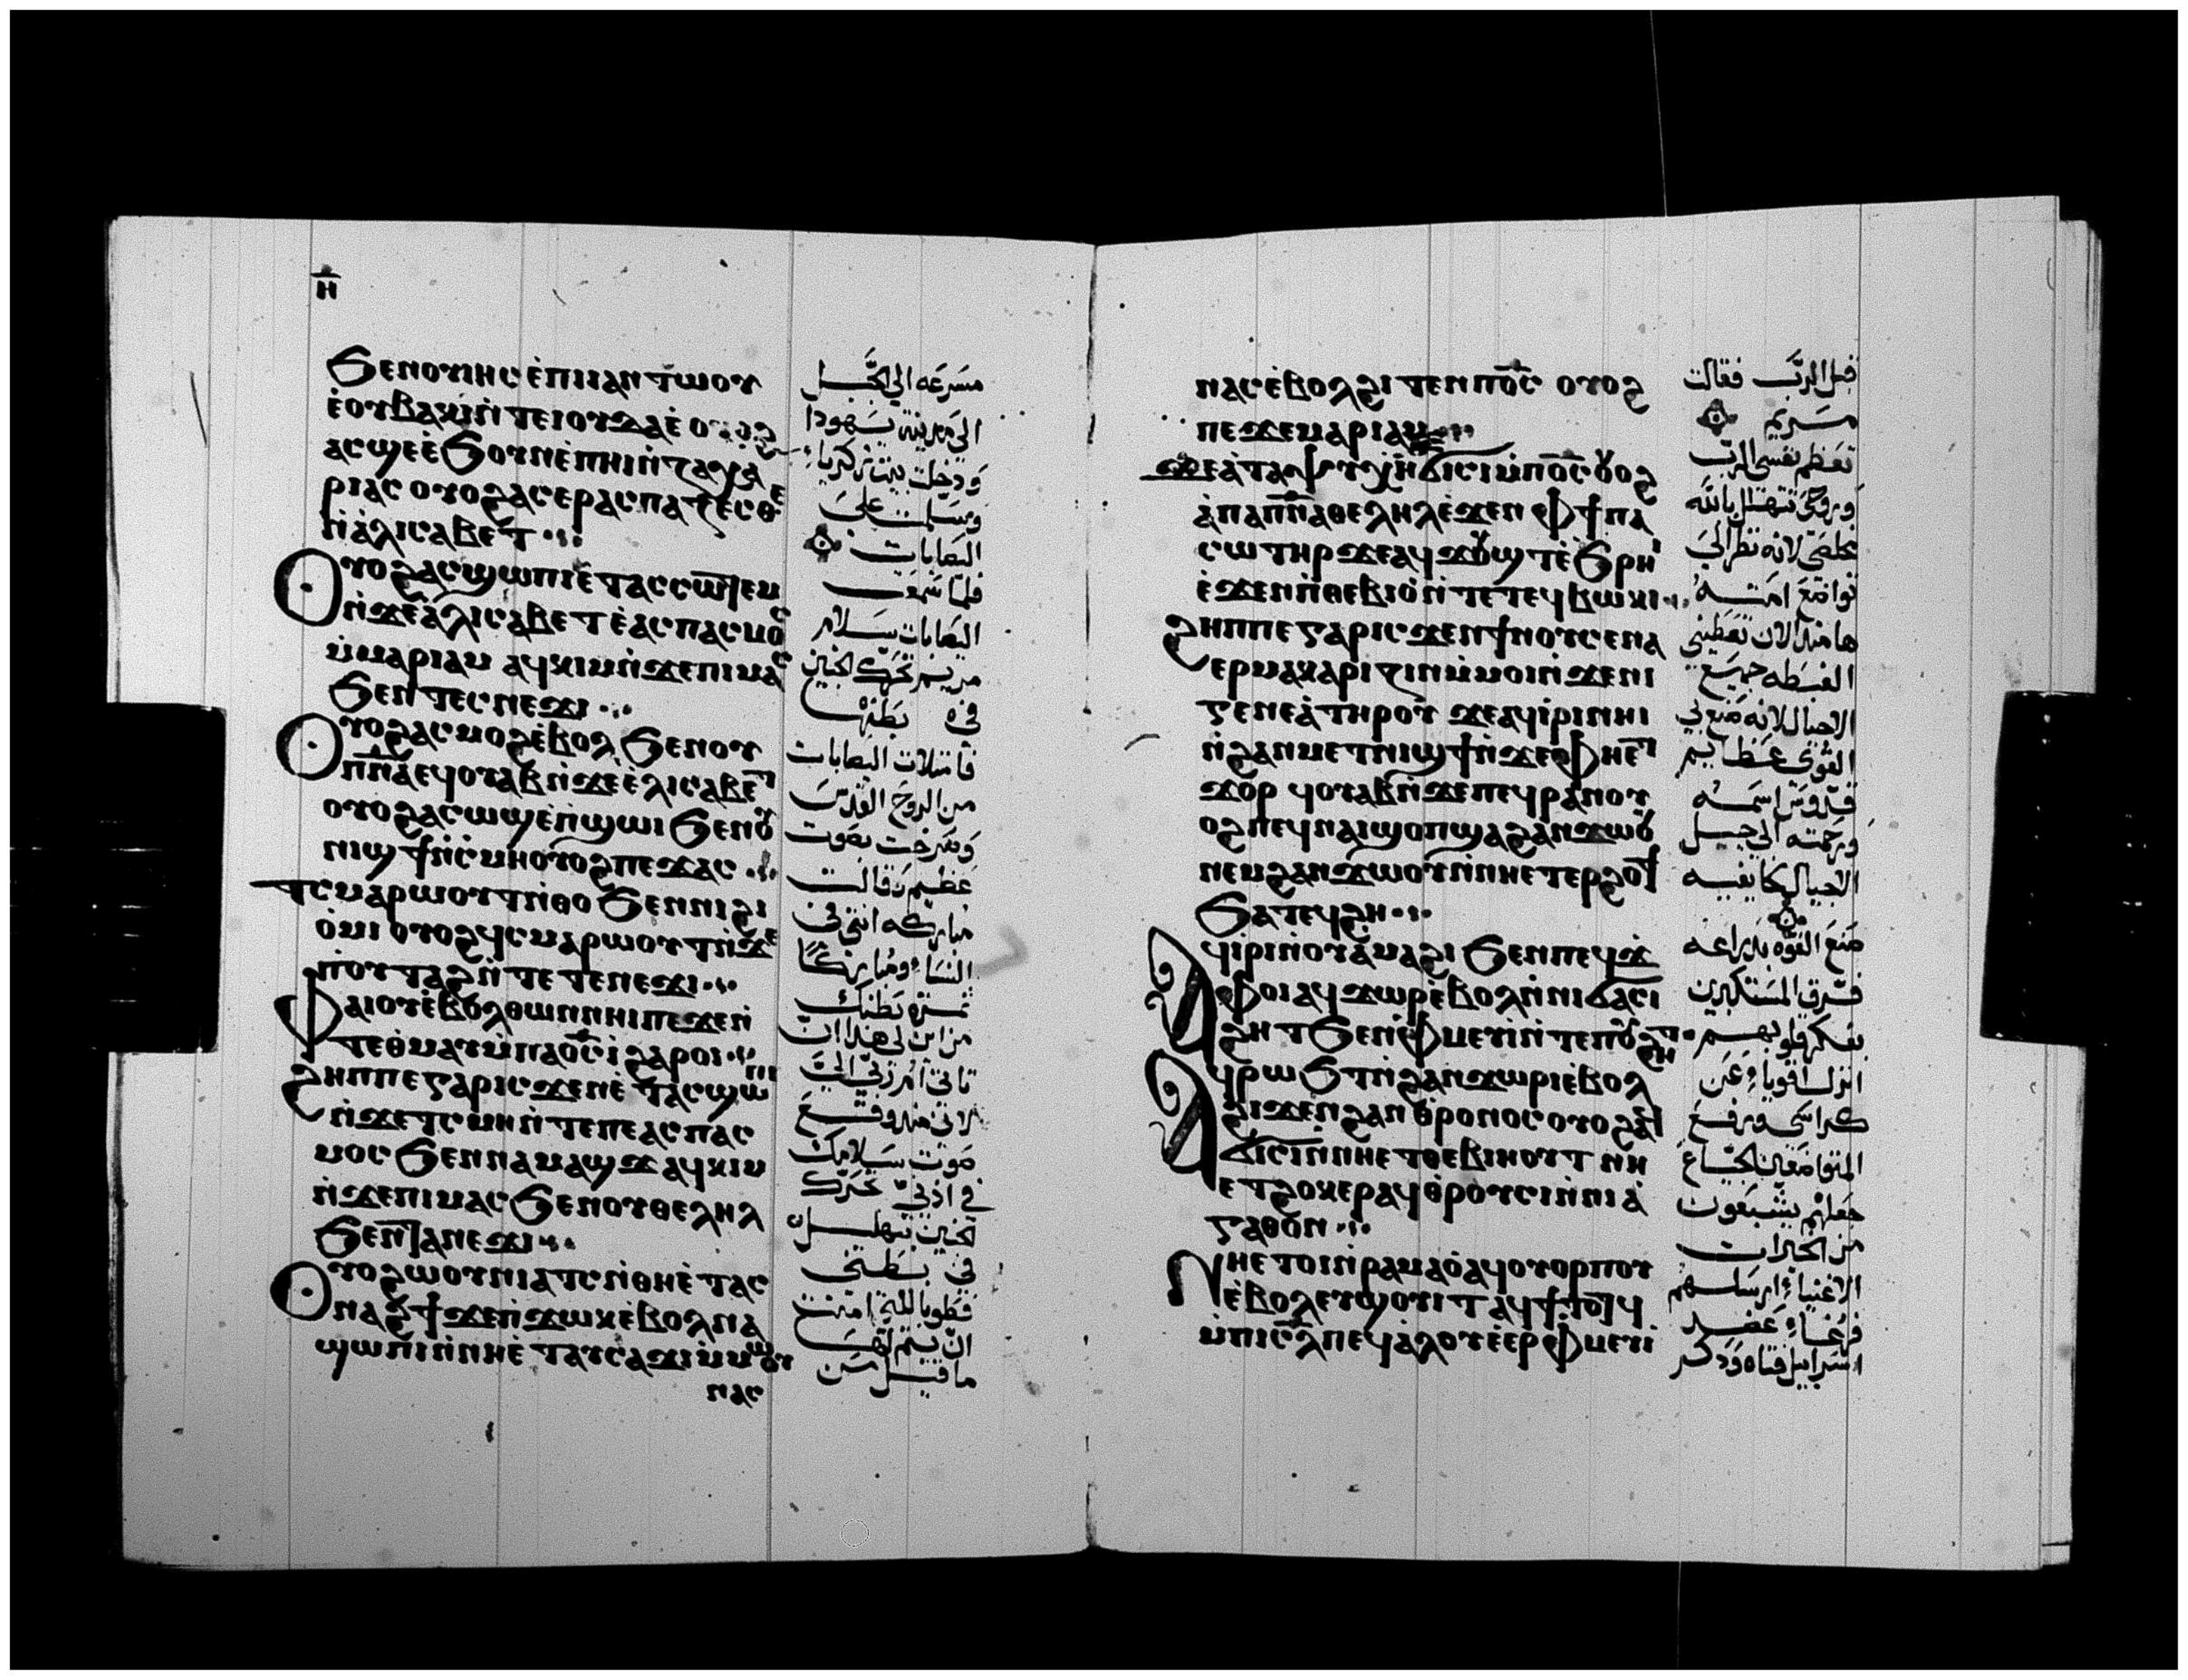 ⲏ̅
Ϧⲉⲛⲟⲩⲓⲏⲥ ⲉ̀ⲡⲓⲙⲁⲛⲧⲱⲟⲩ
ⲉ̀ⲟⲩⲃⲁⲕⲓⲛ̀ⲧⲉⲓⲟⲩⲇⲁⲉ̀ ⲟⲩⲟϩ
ⲁⲥϣⲉⲉ̀Ϧⲟⲩⲛⲉ̀ⲡⲏⲓⲛ̀ⲍⲁⲭⲁ
ⲣⲓⲁⲥ ⲟⲩⲟϩⲁⲥⲉⲣⲁⲥⲡⲁⲍⲉⲥⲑⲉ
ⲛ̀ⲁ̀ⲗⲓⲥⲁⲃⲉⲧ
Ⲟⲩⲟϩⲁⲥϣⲱⲡⲓⲉ̀ⲧⲁⲥⲥⲱⲧⲉⲙ
ⲛ̀ϫⲉⲁ̀ⲗⲓⲥⲁⲃⲉⲧⲉ̀ⲁⲥⲡⲁⲥⲙⲟⲥ
ⲙ̀ⲙⲁⲣⲓⲁⲙ ⲁϥⲕⲓⲙⲛ̀ϫⲉⲡⲓⲙⲁⲥ
Ϧⲉⲛⲧⲉⲥⲛⲉϫⲓ
Ⲟⲩⲟϩⲁⲥⲙⲟϩⲉ̀ⲃⲟⲗ Ϧⲉⲛⲟⲩ
ⲡⲛ̅ⲁ̅ⲉϥⲟⲩⲁⲃⲛ̀ϫⲉⲉ̀ⲗⲓⲥⲁⲃⲉⲧ
ⲟⲩⲟϩⲁⲥⲱϣⲉ̀ⲡ̀ϣⲱⲓ Ϧⲉⲛⲟⲩ
ⲛⲓϣϯⲛ̀ⲥ̀ⲙⲏⲟⲩⲟϩⲡⲉϫⲁⲥ
ⲧⲥⲙⲁⲣⲱⲟⲩⲧⲛ̀ⲑⲟ Ϧⲉⲛⲛⲓϩⲓ
ⲟ̀ⲙⲓ ⲟⲩⲟϩϥⲥⲙⲁⲣⲱⲟⲩⲧⲛ̀ϫⲉ
ⲡⲟⲩⲧⲁϩⲛ̀ⲧⲉⲧⲉⲛⲉϫⲓ
Ⲫⲁⲓⲟⲩⲉ̀ⲃⲟⲗⲑⲱⲛⲛⲏⲓⲡⲉϫⲉⲛ̀
ⲧⲉⲑ̀ⲙⲁⲩⲙ̀ⲡⲁⲟ̅ⲥ̅ⲓ̀ϩⲁⲣⲟⲓ
ϩⲏⲡⲡⲉⲅⲁⲣⲓⲥϫⲉⲛⲉ̀ⲧⲁⲥϣⲱⲡⲓ
ⲛ̀ϫⲉⲧⲥⲙⲏⲛ̀ⲧⲉⲡⲉⲁⲥⲡⲁⲥ
ⲙⲟⲥ Ϧⲉⲛⲛⲁⲙⲁϣϫ ⲁϥⲕⲓⲙ
ⲛ̀ϫⲉⲡⲓⲙⲁⲥ Ϧⲉⲛⲟⲩⲑⲉⲗⲏⲗ
Ϧⲉⲛⲧⲁⲛⲉϫⲓ
Ⲟⲩⲟϩⲱⲟⲩⲛⲓⲁⲧⲥⲛ̀ⲑⲏⲉ̀ⲧⲁⲥ
ⲛⲁϩϯϫⲉⲡ̀ϫⲱⲕⲉ̀ⲃⲟⲗⲛⲁ
ϣⲱⲡⲓⲛ̀ⲛⲏⲉ̀ⲧⲁⲩⲥⲁϫⲓⲙ̀ⲙⲱⲟⲩ
ⲛⲁⲥ
مسرعه الى الجبل
الى مدينة يهودا
ودخلت بيت زكرياء
وسلمت على
اليصابات
فلما سمعت
اليصابات سلام
مريم تحرك الجنين
في بطنها
فأمتلات اليصابات
من الروح القدس
وصرخت بصوت
عظيم وقالت
مباركه انتي في
النساء ومباركًا
ثمرة بطنك
من اين لي هذا ان
تاتي ام ربي الي
لاني منذ وقع
صوت سلامك
في اذني تحرك
الجنين بتهليل
في بطني
فطوبا للتي امنت
ان يتم لها
ما قيل من
ⲛⲁⲥⲉ̀ⲃⲟⲗϩⲓⲧⲉⲛⲡⲟ̅ⲥ̅ ⲟⲩⲟϩ
ⲡⲉϫⲉⲙⲁⲣⲓⲁⲙ
ϫⲉⲁ̀ⲧⲁⲯⲩⲭⲏϭⲓⲥⲓⲙ̀ⲡⲟ̅ⲥ̅ⲟⲩⲟϩ
ⲁ̀ⲡⲁⲡⲛ̅ⲁ̅ⲑⲉⲗⲏⲗⲉ̀ϫⲉⲛⲫϯⲡⲁ
ⲥⲱⲧⲏⲣϫⲉⲁϥϫⲟⲩϣⲧⲉ̀Ϧⲣⲏⲓ
ⲉ̀ϫⲉⲛⲡ̀ⲑⲉⲃⲓⲟ̀ⲛ̀ⲧⲉⲧⲉϥⲃⲱⲕⲓ
ϩⲏⲡⲡⲉⲅⲁⲣⲓⲥϫⲉⲛϯⲛⲟⲩⲥⲉⲛⲁ
ⲉⲣⲙⲁⲕⲁⲣⲓⲍⲓⲛⲙ̀ⲙⲟⲓⲛ̀ϫⲉⲛⲓ
ⲅⲉⲛⲉⲁ̀ⲧⲏⲣⲟⲩ ϫⲉⲁϥⲓ̀ⲣⲓⲛⲏⲓ
ⲛ̀ϩⲁⲛⲙⲉⲧⲛⲓϣϯⲛ̀ϫⲉⲫⲏⲉⲧ
ϫⲟⲣ ϥⲟⲩⲁⲃⲛ̀ϫⲉⲡⲉϥⲣⲁⲛⲟⲩ
ⲟϩⲡⲉϥⲛⲁⲓϣⲟⲡϣⲁϩⲁⲛϫⲱⲟⲩ
ⲛⲉⲙϩⲁⲛϫⲱⲟⲩⲛ̀ⲛⲏⲉⲧⲉⲣϩⲟϯ
Ϧⲁⲧⲉϥϩⲏ
Ⲁϥⲓⲣⲓⲛ̀ⲟⲩⲁ̀ⲙⲁϩⲓ Ϧⲉⲛⲡⲉϥϫ
ⲫⲟⲓⲁϥϫⲱⲣⲉ̀ⲃⲟⲗⲛ̀ⲛⲓϭⲁⲥⲓ
ϩⲏⲧ Ϧⲉⲛⲫⲙⲉⲩⲓⲛ̀ⲧⲉⲡⲟⲩϩⲏⲧ
ⲀϥⲣⲱϦⲧⲛ̀ϩⲁⲛϫⲱⲣⲓⲉ̀ⲃⲟⲗ
ϩⲓϫⲉⲛϩⲁⲛⲑⲣⲟⲛⲟⲥⲟⲩⲟϩⲁϥ
ϭⲓⲥⲓⲛ̀ⲛⲏⲉⲧⲑⲉⲃⲓⲏⲟⲩⲧ ⲛⲏ
ⲉⲧϩⲟⲕⲉⲣⲁϥⲑⲣⲟⲩⲥⲓⲛ̀ⲛⲓⲁ̀
ⲅⲁⲑⲟⲛ
Ⲛⲏⲉⲧⲟⲓⲛ̀ⲣⲁⲙⲁⲟ̀ⲁϥⲟⲩⲟⲣⲡⲟⲩ
ⲉ̀ⲃⲟⲗⲉⲩϣⲟⲩⲓⲧ ⲁϥϯⲧⲟⲧϥ
ⲙ̀ⲡⲓⲥ̅ⲗ̅ⲡⲉϥⲁ̀ⲗⲟⲩⲉ̀ⲉⲣⲫⲙⲉⲩⲓ
قبل الرب فقالت
مريم
تعظم نفسي الرب
وروحي تتهلل بالله
مخلصي لانه نظر الى
تواضع امته
ها منذ الان تعطيني
الغبطه جميع
الاجيال لانه صنع بي
القوي عظايم
قدوس اسمه
ورحمته الى جيل
الاجيال لخايفيه
صنع القوه بذراعه
فرق المستكبرين
بفكر قلوبهم
انزل اقوياء عن
كراسي ورفع
المتواضعين الجياع
جعلهم يشبعون
من الخيرات
الاغنياء ارسلهم
فرغاء عضد
اسراييل فتاه وذكر